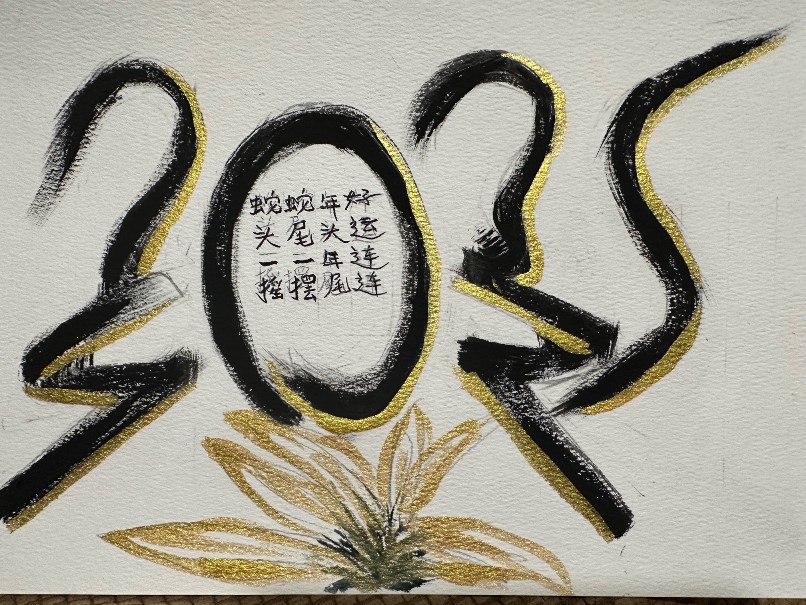 2025
蛇头一摇
蛇尾一摆
年头年尾
好运连连